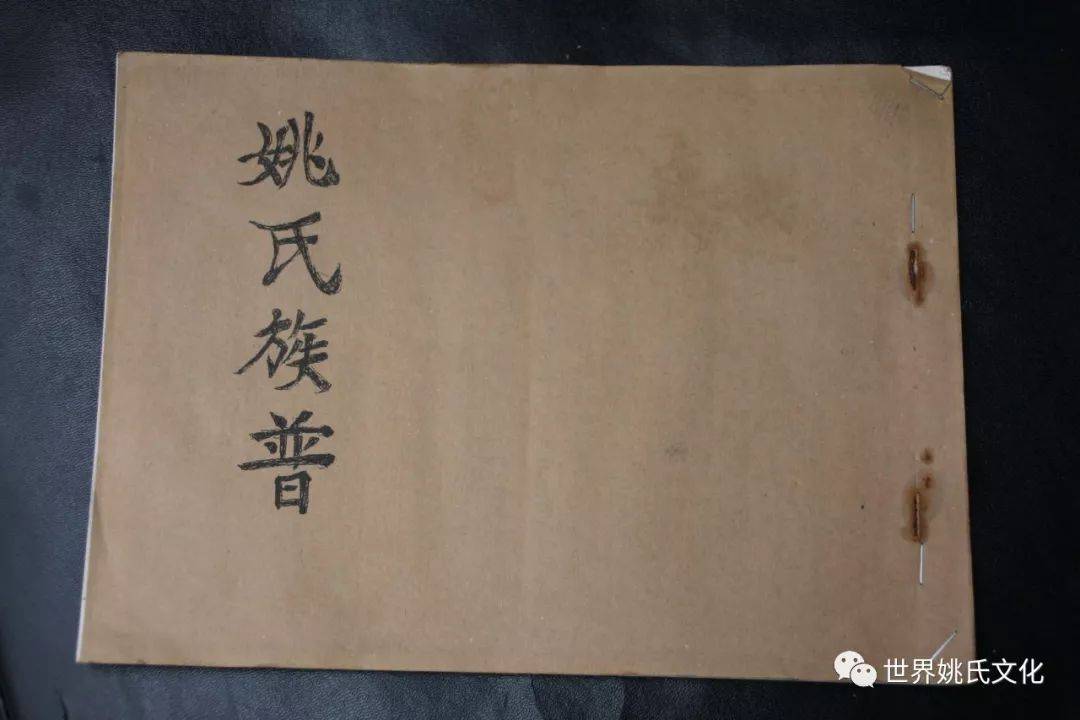 姚氏族普
世界姚氏文化